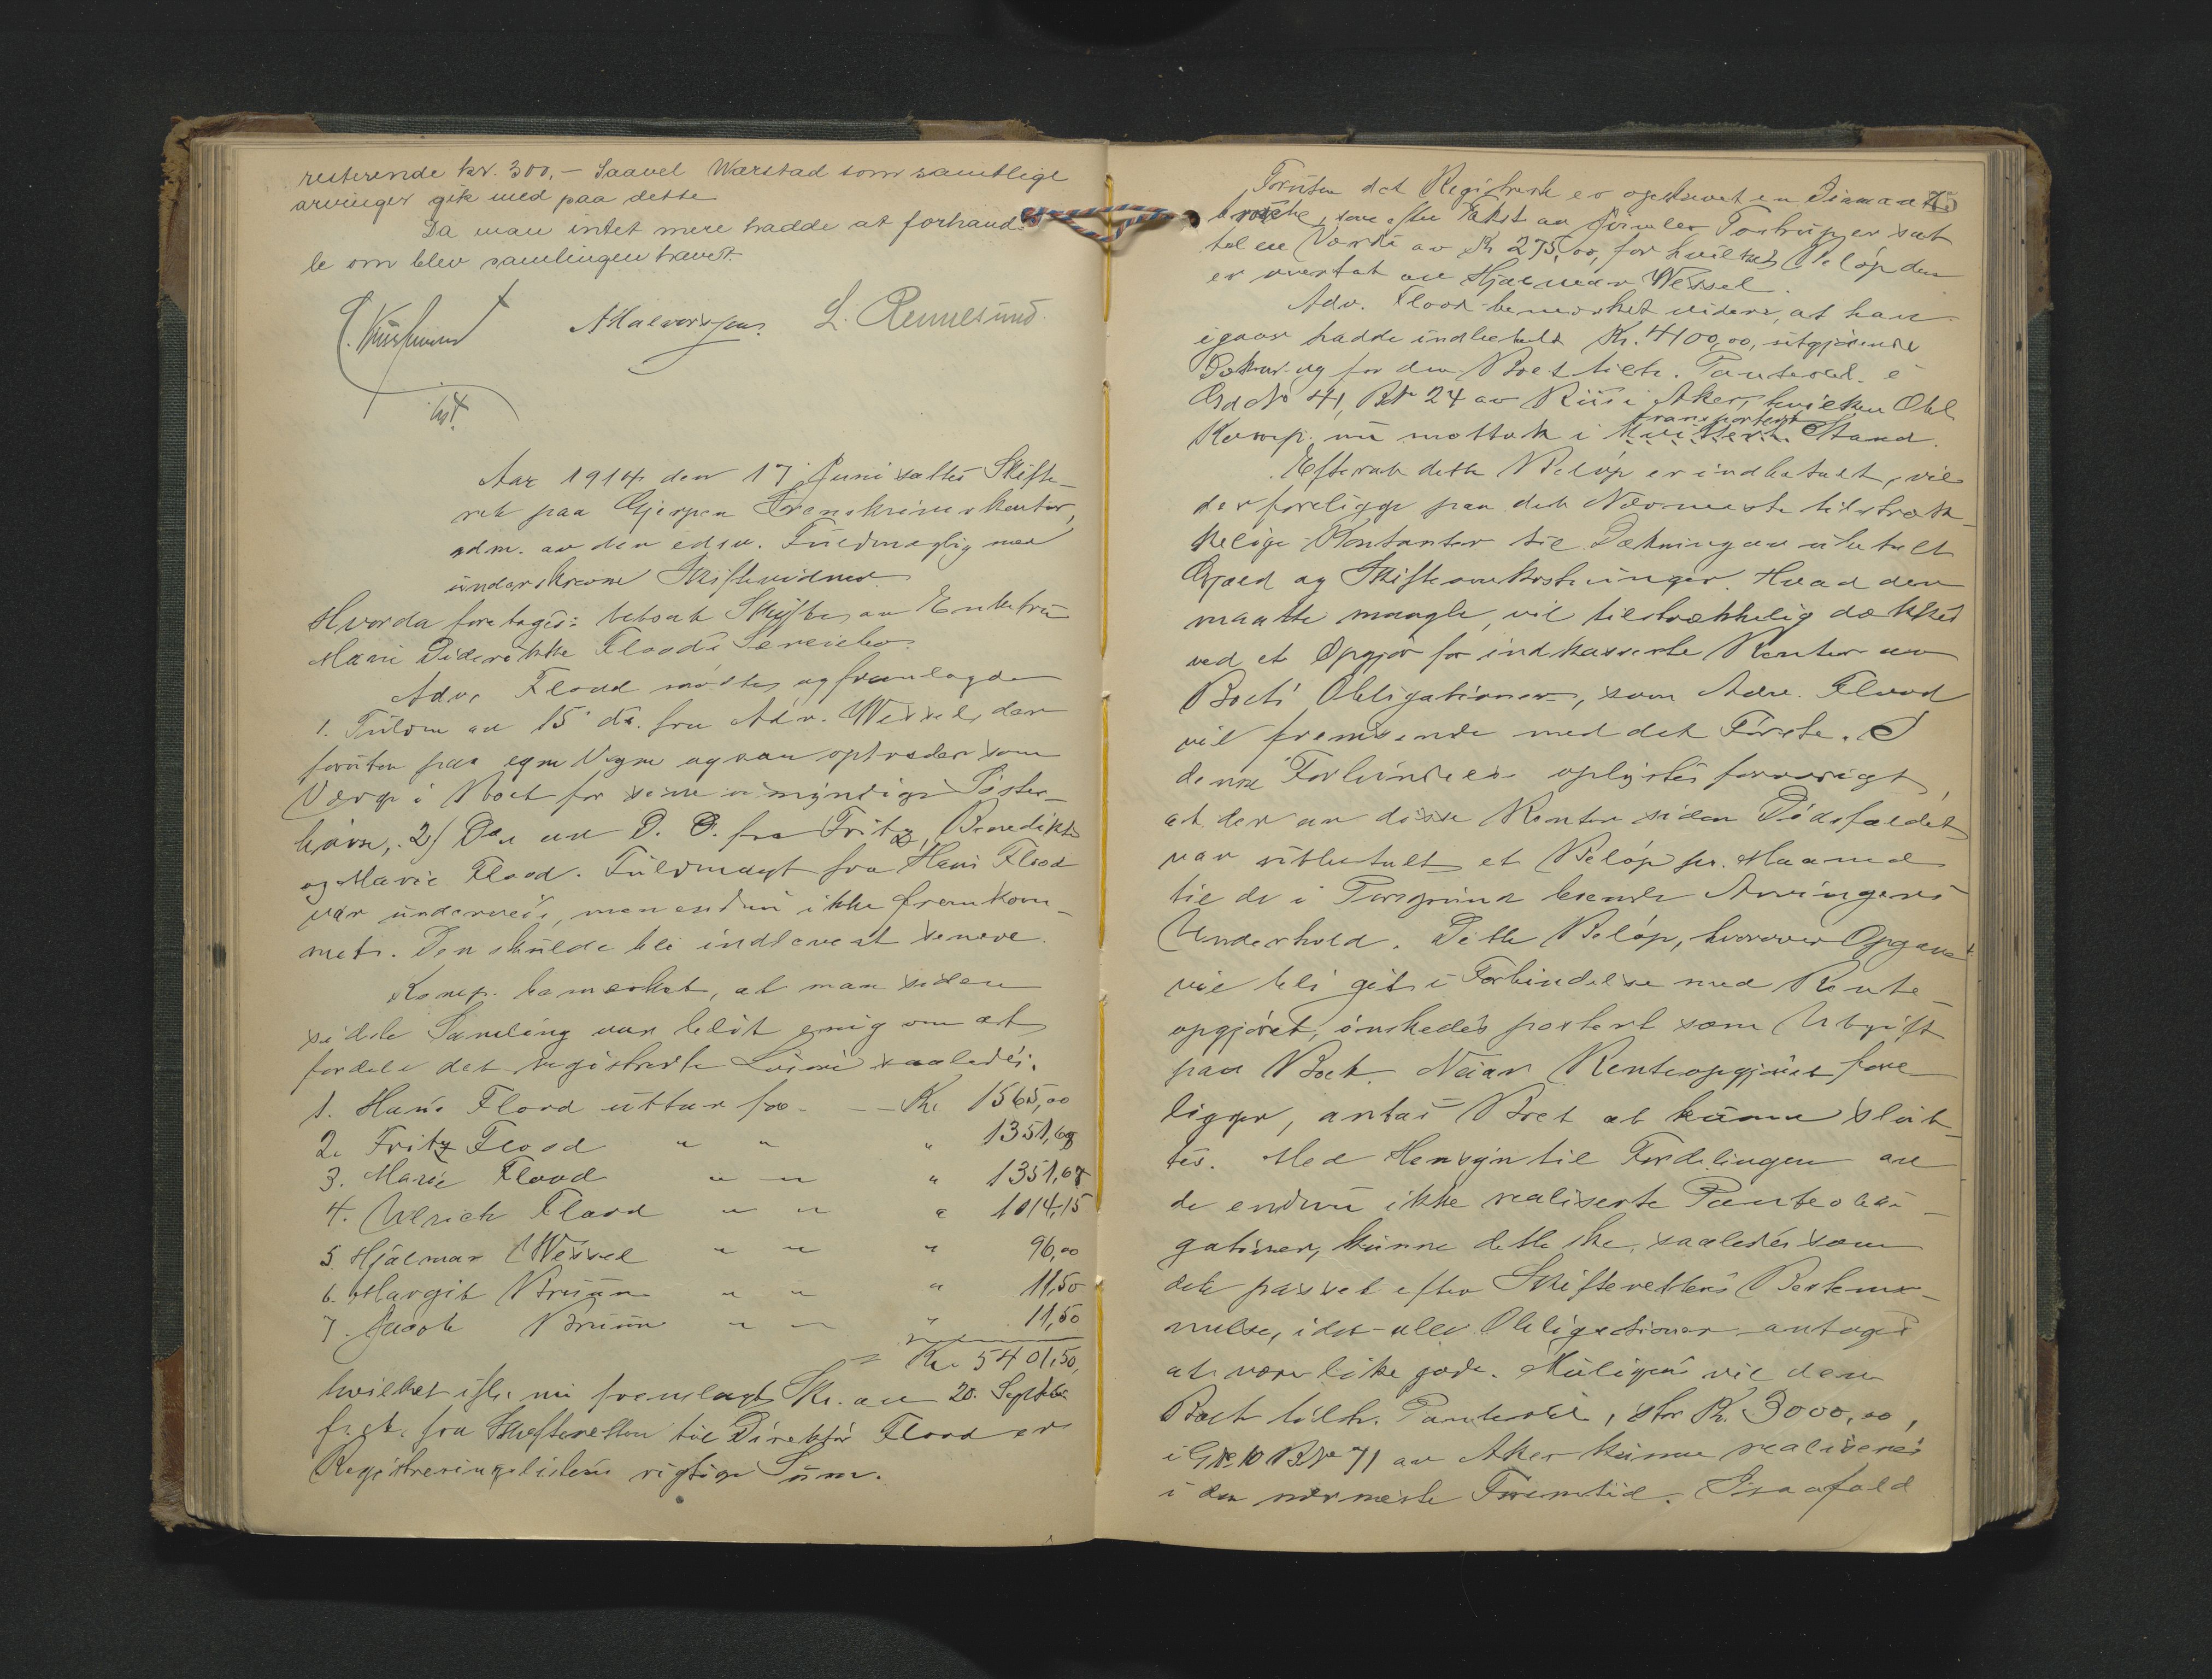 resterende kr. 300,- Saavel Warstad som samtlige
arvinger gik med paa dette
Da man intet mere hadde at forhand-
le om blev samlingen hævet.
A Halvorsen. L. Rennesund.
cst.
Aar 1914 den 17 Juni sattes Skifte-
ret paa Gjerpen Sorenskriverkontor,
adm. av den edsv. Fuldmægtig med
underskrevne Skiftevidner
Hvorda foretoges: betsat Skifte av Enkefru
Marie Diderikke Floods Sterfbo.
Adv. Flood mødte og fremlagde
1. Fuldm av 15 ds. fra Adv. Wessel, der
foruten paa egne Vegne ogsaa optræder som
Værge i Boet for sine umyndige Søster-
børn, 2) Do av D. D. fra Fritz, Benedikte
og Marie Flood. Fuldmagt fra Hans Flood
var underveis, men endnu ikke fremkom-
met. Den skulde bli indleveret senere.
Komp. bemerket, at man siden
sidste Samling var blit enig om at
fordele det registrerte Løsøre saaledes:
1. Hans Flood uttar for - - Kr. 1565,00
2. Fritz Flood " " " 1351,68
3. Marie Flood " " " 1351,67
4. Ulrich Flood " " " 1014,15
5. Hjalmar Wessel " " " 96,00
6. Margit Bruun " " " 11,50
7. Jacob Bruun " " " 11,50
= Kr. 5401,50,
hvilket iflg. nu fremlagt Skr. av 20. Septbr
f. A. fra Skifteretten til Direktør Flood er
Registreringslistens rigtige Sum.
75
Foruten det Registrerte er opskrevet en Diamant-
broche, som efter Takst av Juveler Tostrup er sat
til en Værdi av Kr 275,00, for hvilket Beløp den
er overtat av Hjalmar Wessel.
Adv. Flood bemerket videre, at han
igaar hadde indbetalt Kr. 4100,00, utgjørende
for den Boet tilh. Panteobl. i
Grd No 41, Br 24 av Aker, hvilken Obl
transportert
Komp. nu mottok i kvittert Stand.
Efterat dette Beløp er indbetalt, vil
der foreligge paa det Nærmeste tilstræk-
kelige Kontanter til Dækning av ubetalt
Gjæld og Skifteomkostninger. Hvad der
maatte mangle, vil tilstrækkelig dækkes
ved et Opgjør for indkasserte Renter av
Boets Obligationer, som Adv. Flood
vil fremsende med det Første. I
denne Forbindelse oplystes forøvrigt,
at der av disse Renter siden Dødsfaldet
var utbetalt et Beløp pr. Maaned
til de i Porsgrund boende Arvingers
Underhold. Dette Beløp, hvorover Opgave
vil bli git i Forbindelse med Rente-
opgjøret, ønskedes postert som Utgift
paa Boet. Naar Renteopgjøret fore-
ligger, antas Boet at kunne slut-
tes. Med Hensyn til Fordelingen av
de endnu ikke realiserte Panteobli-
gationer, kunne dette ske, saaledes som
det passet efter Skifterettens Bestem-
melse, idet alle Obligationer antoges
at være like gode. Muligens vil den
Boet tilh. Panteobl, stor Kr. 3000,00,
i GNr 10 BNr 71 av Aker kunne realiseres
i den nærmeste Fremtid. Isaafald